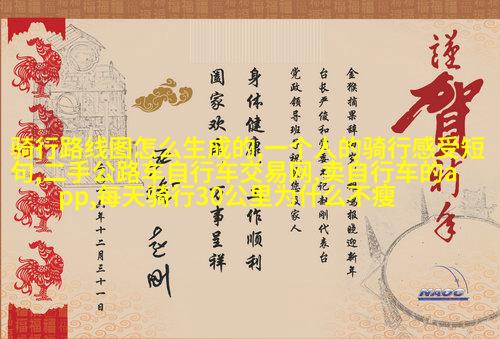 骑行路线图怎么生成的,一个人的骑行感受短
句,二手公路车自行车交易网,卖自行车的a
pp,每天骑行30公里为什么不瘦
謹賀新年
金猴摘果辞岁报晓迎新年
台长严俊和党委记刚代表台
党政领导班祝家人
身体健康 工作顺利
阖家欢 万事呈祥
刚
六年十二月三十一日
NAOC